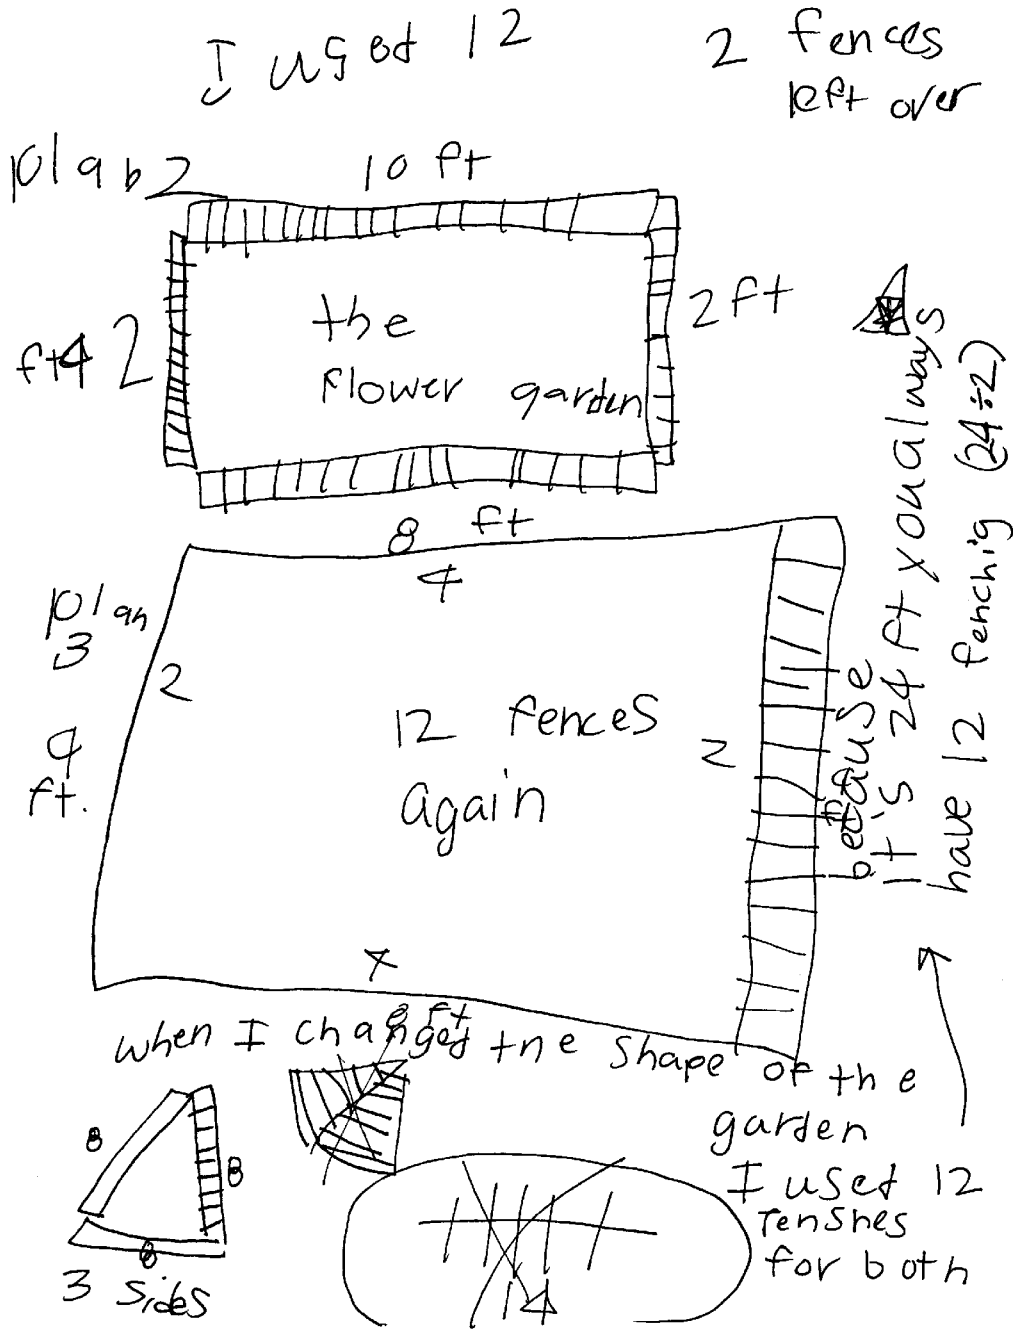 I used 12
2 fences
left over
plab 2
10 ft
ft4 2
2 ft
the
flower garden
8 ft
4
plan
3
2
12 fences
again
2
9
ft.
4
8 ft
because
it's 24 ft you always
have 12 fenchig (24÷2)
when I changed tne shape of the
garden
I used 12
Tenshes
for both
8
8
8
3 sides
14